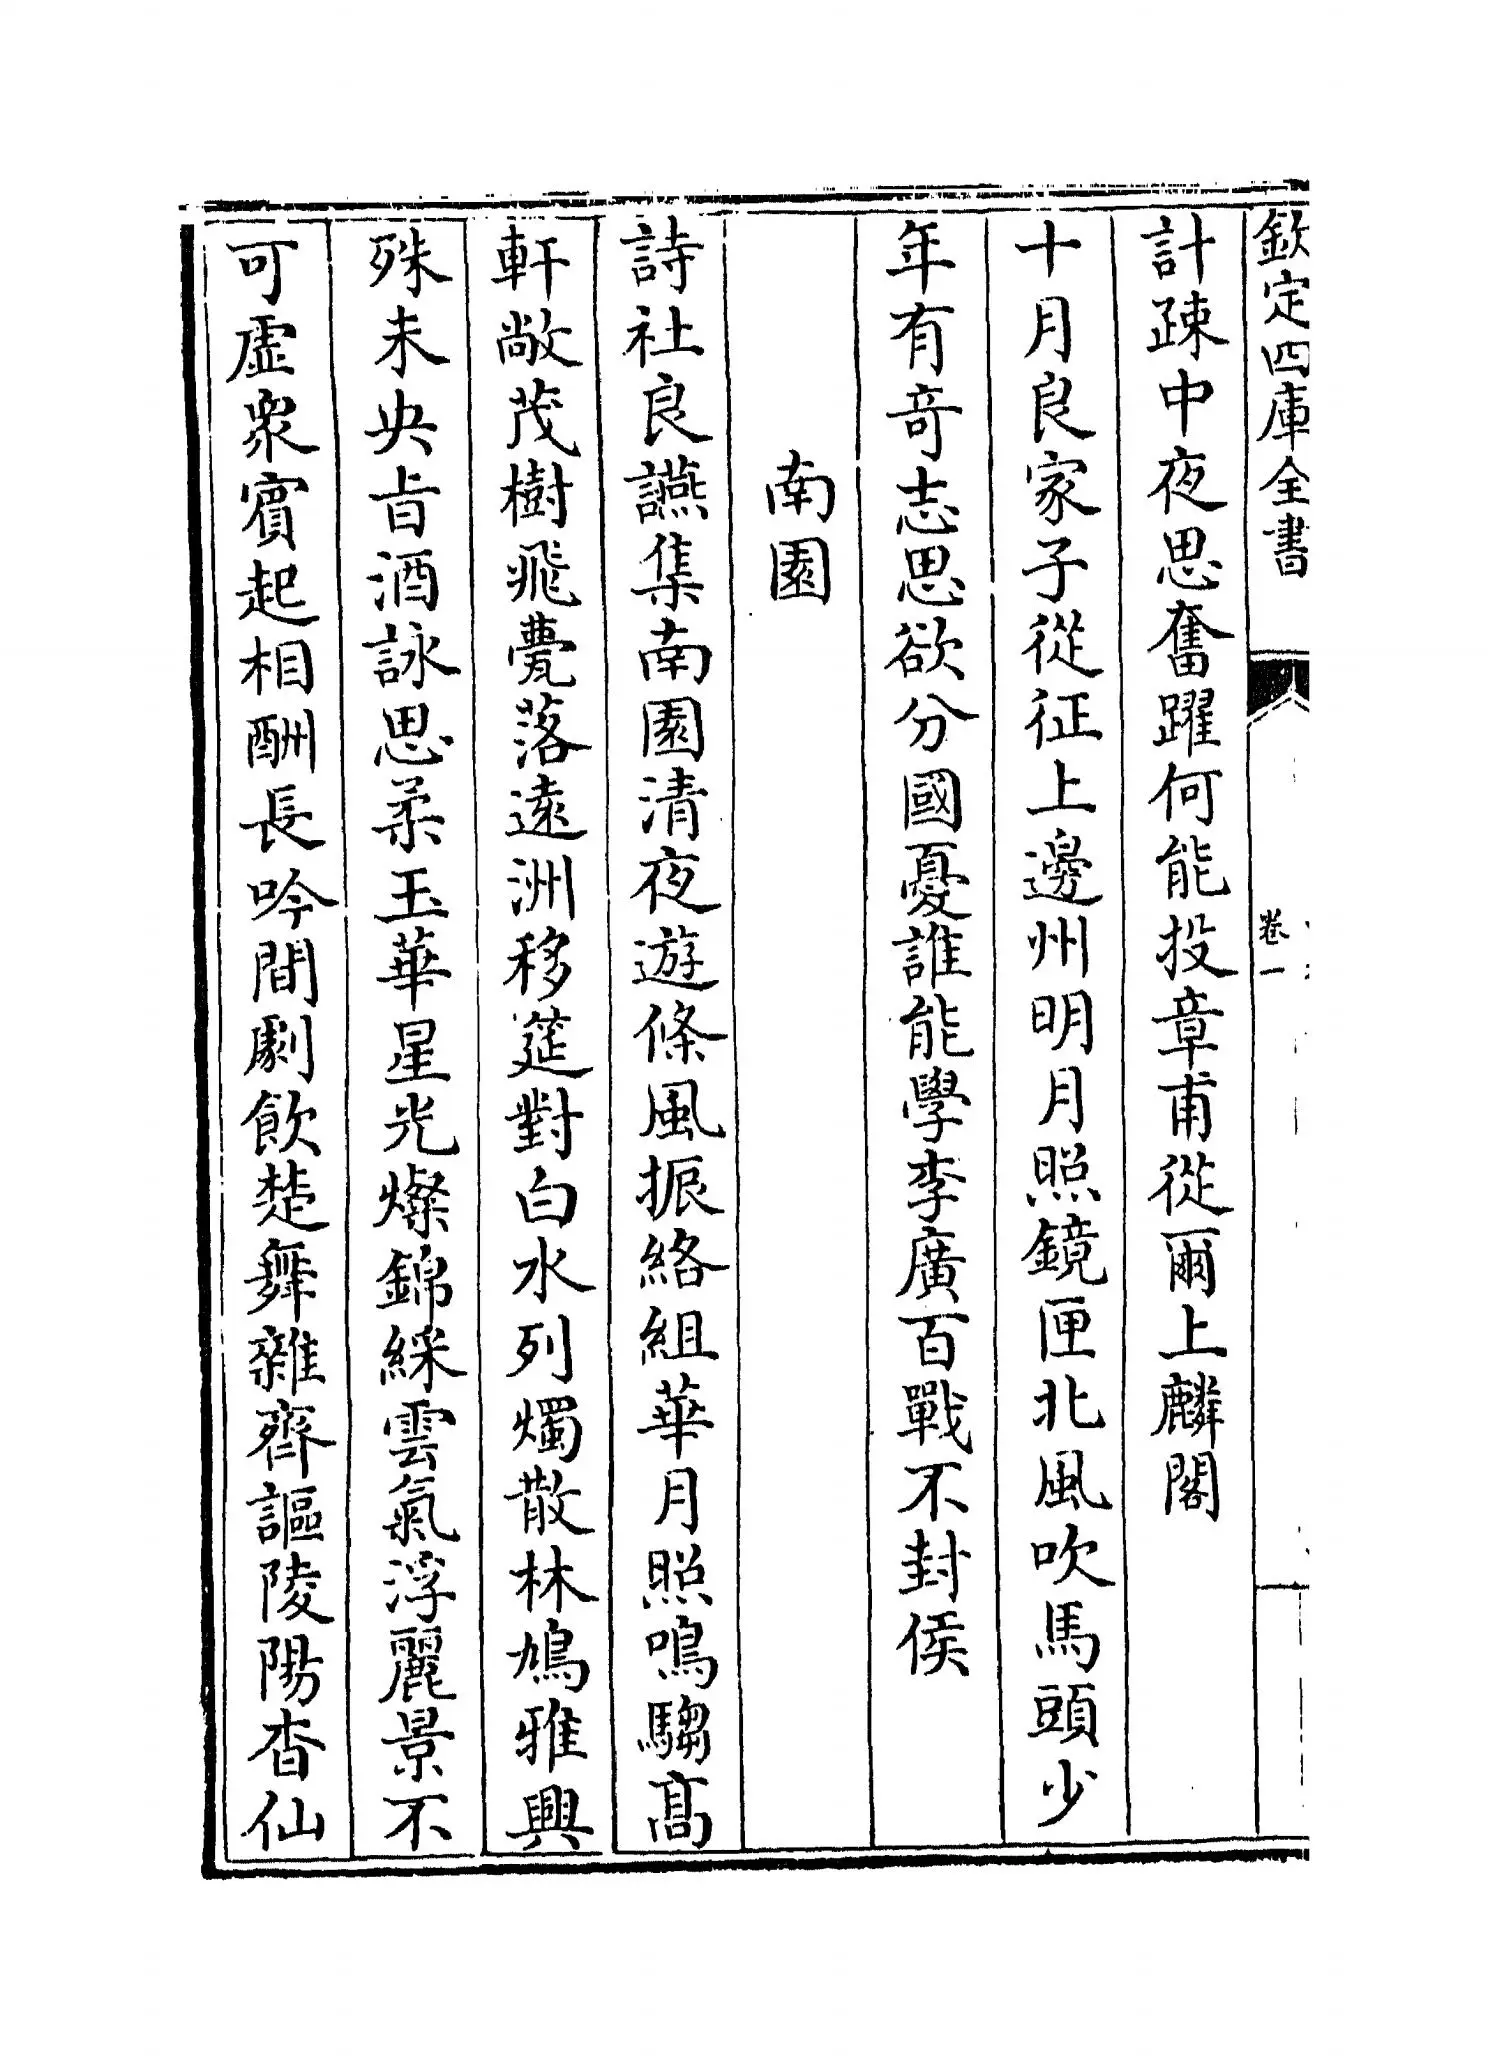 欽定四庫全書
卷一
計疎中夜思奮躍何能投章甫從爾上麟閣
十月良家子從征上邊州明月照鏡匣北風吹馬頭少
年有奇志思欲分國憂誰能學李廣百戰不封侯
南園
詩社良讌集南園清夜遊條風振絡組華月照鳴騶髙
軒敞茂樹飛甍落遠洲移筵對白水列燭散林鳩雅興
殊未央㫖酒詠思柔玉華星光燦錦綵雲氣浮麗景不
可虛衆賓起相酬長吟間劇飲楚舞雜齊謳陵陽杳仙